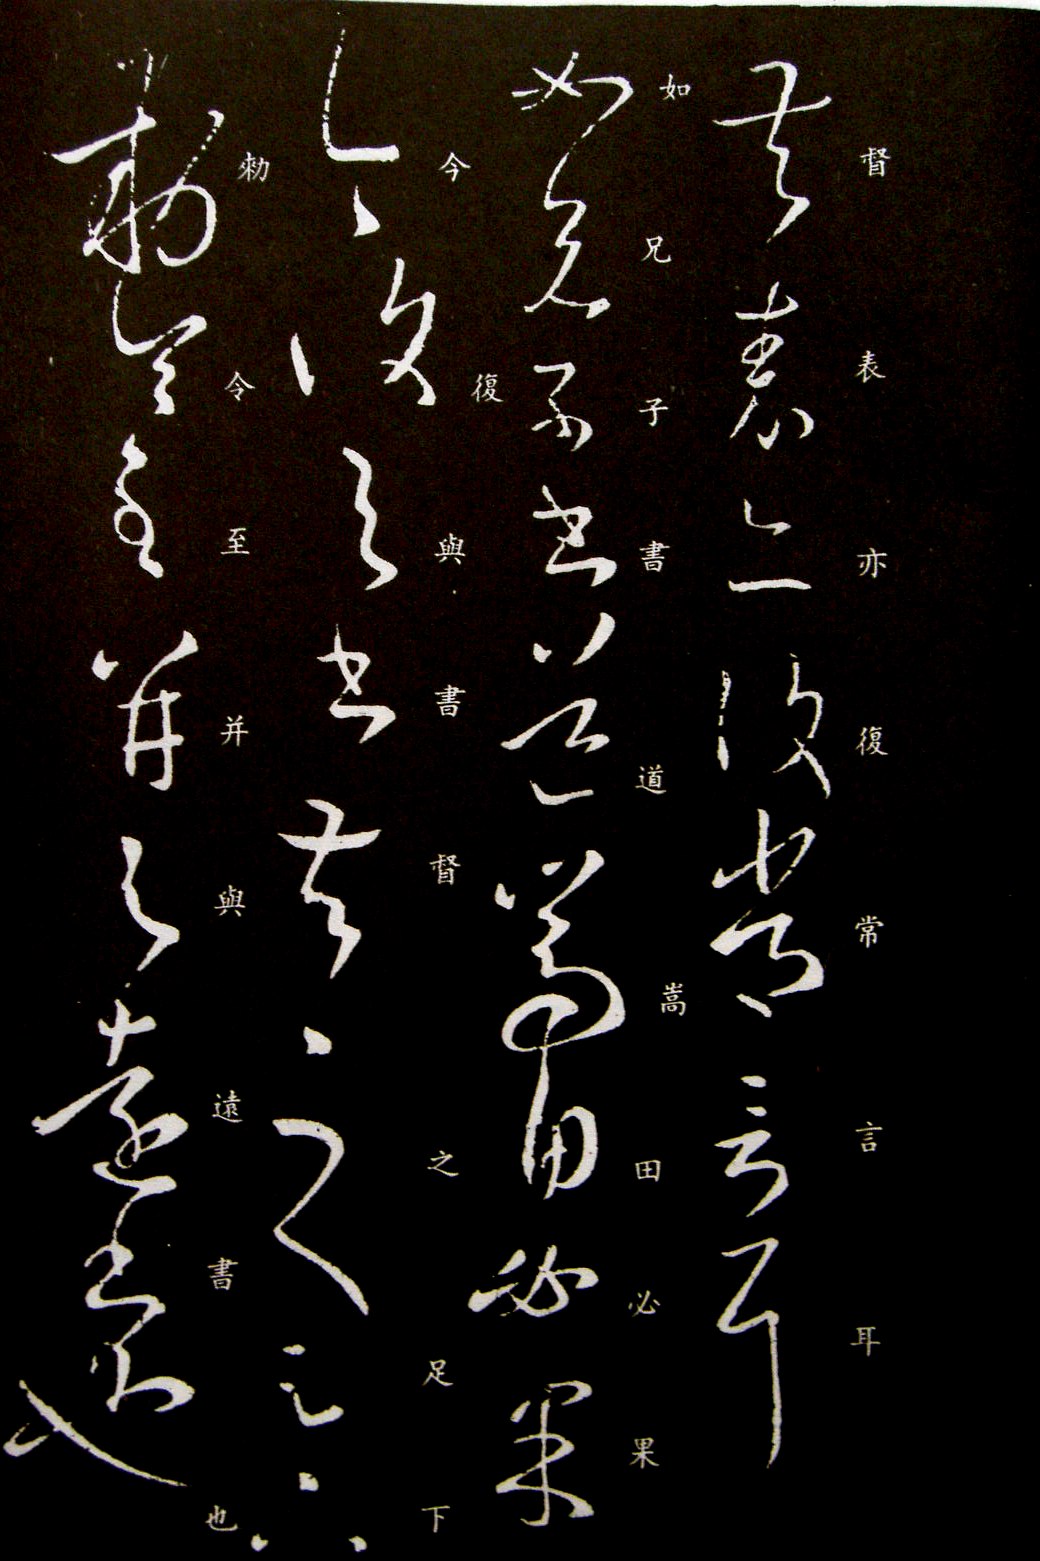 督表亦復常言耳
如兄子書道嵩田必果
今復與書督之足下
勑令至并與遠書也